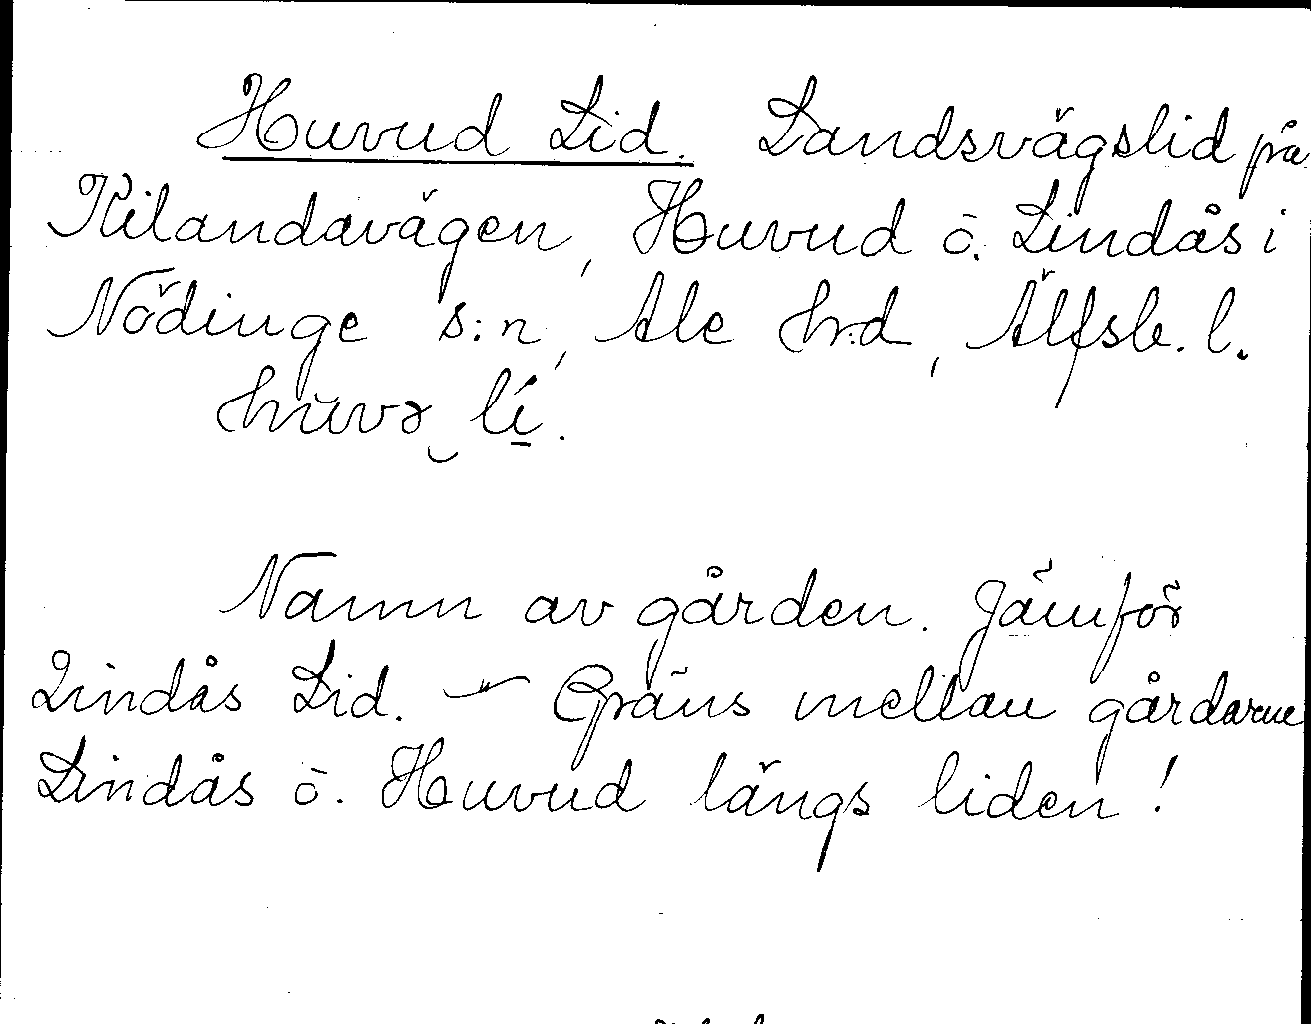 Huvud Lid. Landsvägslid på
Kilandavägen, Huvud o. Lindås i
Nödinge s:n, Ale hrd, Älfsb. l.
huvə lí.
Namn av gården. Jämför
Lindås Lid. — Gräns mellan gårdarne
Lindås o. Huvud längs liden!